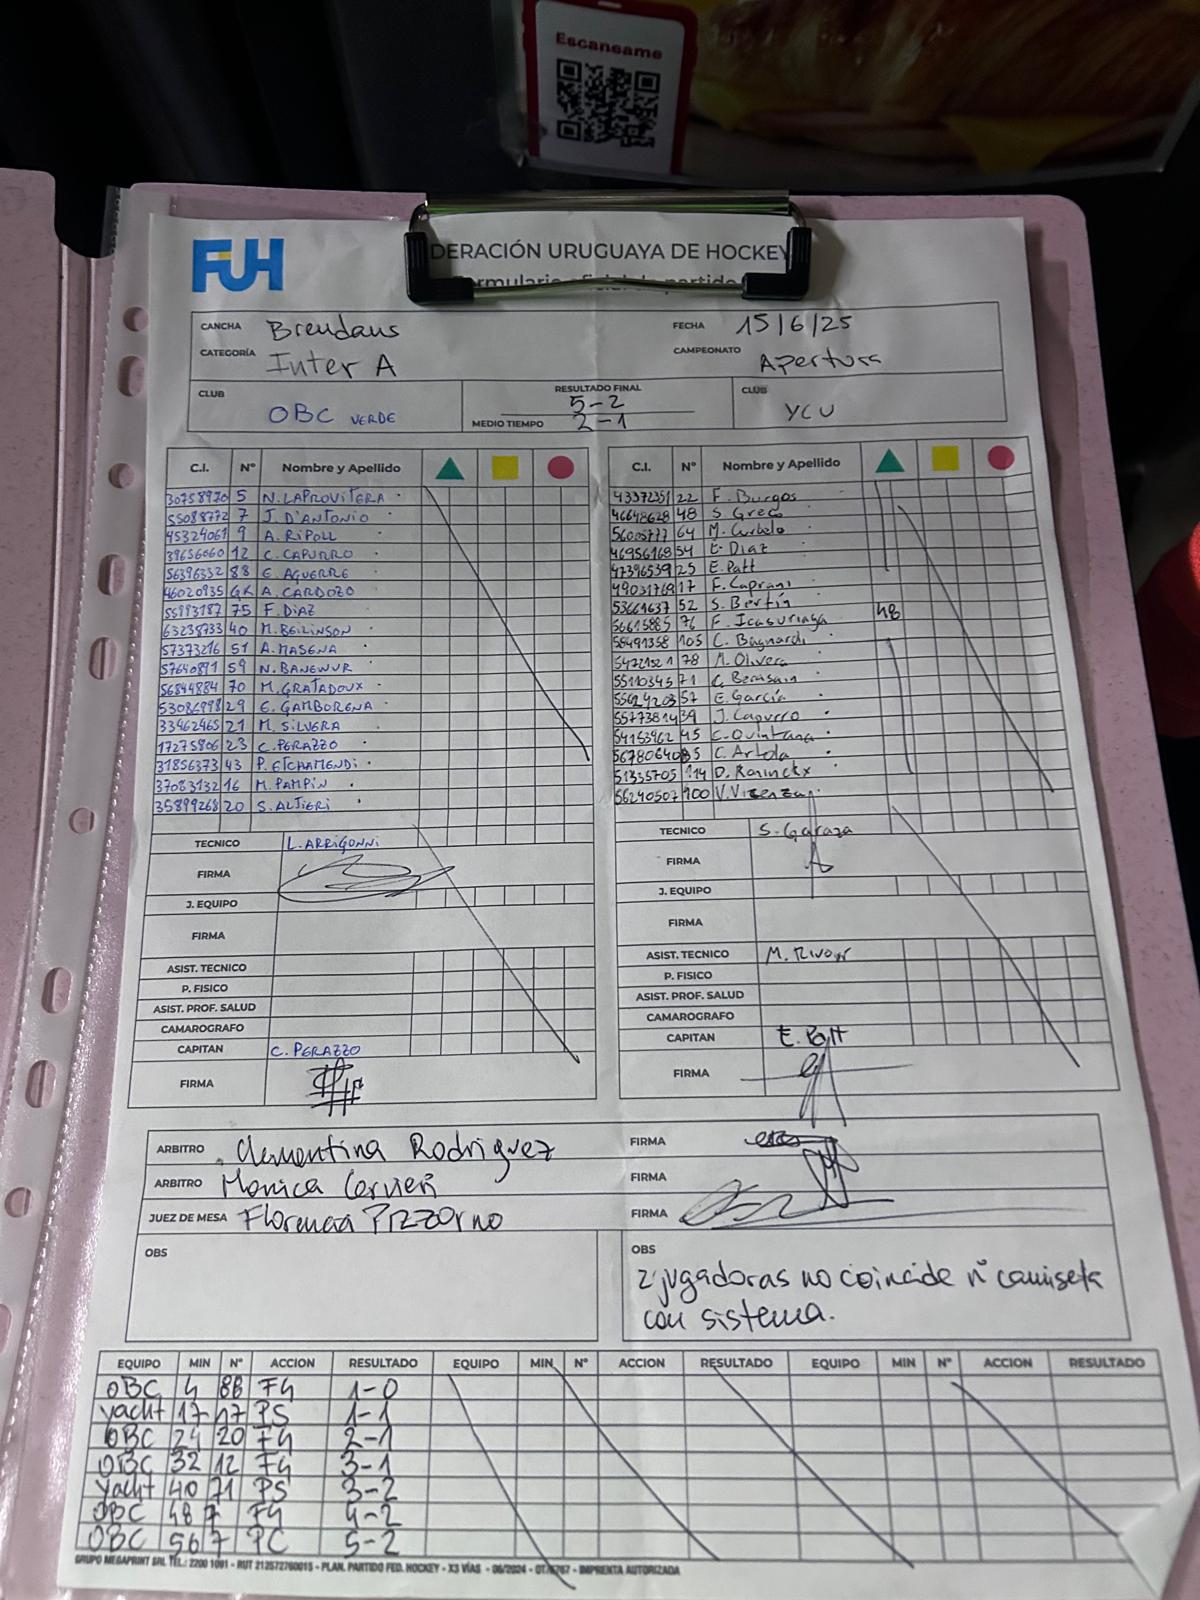 Escaneame
FUH
DERACIÓN URUGUAYA DE HOCKEY
CANCHA Brendans FECHA 15/6/25
CATEGORÍA Inter A CAMPEONATO Apertura
CLUB OBC VERDE RESULTADO FINAL 5-2 CLUB YCU
MEDIO TIEMPO 2-1
C.I. Nº Nombre y Apellido
30758970 5 N. LAPROVITERA
55088772 7 J. D'ANTONIO
45324061 9 A. RIPOLL
39656060 12 C. CAPURRO
56396332 88 E. AGUERRE
46020935 GK A. CARDOZO
55993187 75 F. DIAZ
63238733 40 M. BEILINSON
57373216 51 A. MASENA
57640891 59 N. BANEWUR
56844884 70 M. GRATADOUX
53086998 29 E. GAMBORENA
33462465 21 M. SILVERA
17275806 23 C. PERAZZO
31856373 43 P. ETCHAMENDI
37083132 16 M. PAMPÍN
35899268 20 S. ALTIERI
TECNICO L. ARRIGONNI
FIRMA
J. EQUIPO
FIRMA
ASIST. TECNICO
P. FISICO
ASIST. PROF. SALUD
CAMAROGRAFO
CAPITAN C. PERAZZO
FIRMA
C.I. Nº Nombre y Apellido
43372351 22 F. Burgos
46648628 48 S. Greco
56005777 64 M. Curbelo
46956168 54 E. Diaz
47396539 25 E. Patt
49031769 17 F. Caprani
53661637 52 S. Bertín
56615885 76 F. Icasuriaga 48
58491358 105 C. Bagnardi
54721521 78 M. Olivera
55110345 71 C. Bensain
55624203 57 E. García
55773814 39 J. Capurro
54153962 45 C. Quintana
C. Artola
51335705 114 D. Raninckx
56240507 100
TECNICO S. Garaza
FIRMA
J. EQUIPO
FIRMA
ASIST. TECNICO M.
P. FISICO
ASIST. PROF. SALUD
CAMAROGRAFO
CAPITAN E. Patt
FIRMA
ARBITRO Clementina Rodriguez FIRMA
ARBITRO Monica Cervieri FIRMA
JUEZ DE MESA Florencia Pizzorno FIRMA
OBS
OBS
2 jugadoras no coincide nº camiseta
con sistema.
EQUIPO MIN Nº ACCION RESULTADO EQUIPO MIN Nº ACCION RESULTADO EQUIPO MIN Nº ACCION RESULTADO
OBC 4 88 FG 1-0
Yacht 17 17 PS 1-1
OBC 24 20 FG 2-1
OBC 32 12 FG 3-1
Yacht 40 71 PS 3-2
OBC 48 7 FG 4-2
OBC 56 7 PC 5-2
GRUPO MEGAPRINT SRL TEL.: 2200 1091 - RUT 212572760015 - PLAN. PARTIDO FED. HOCKEY - X3 VÍAS - 06/2024 - IMPRENTA AUTORIZADA